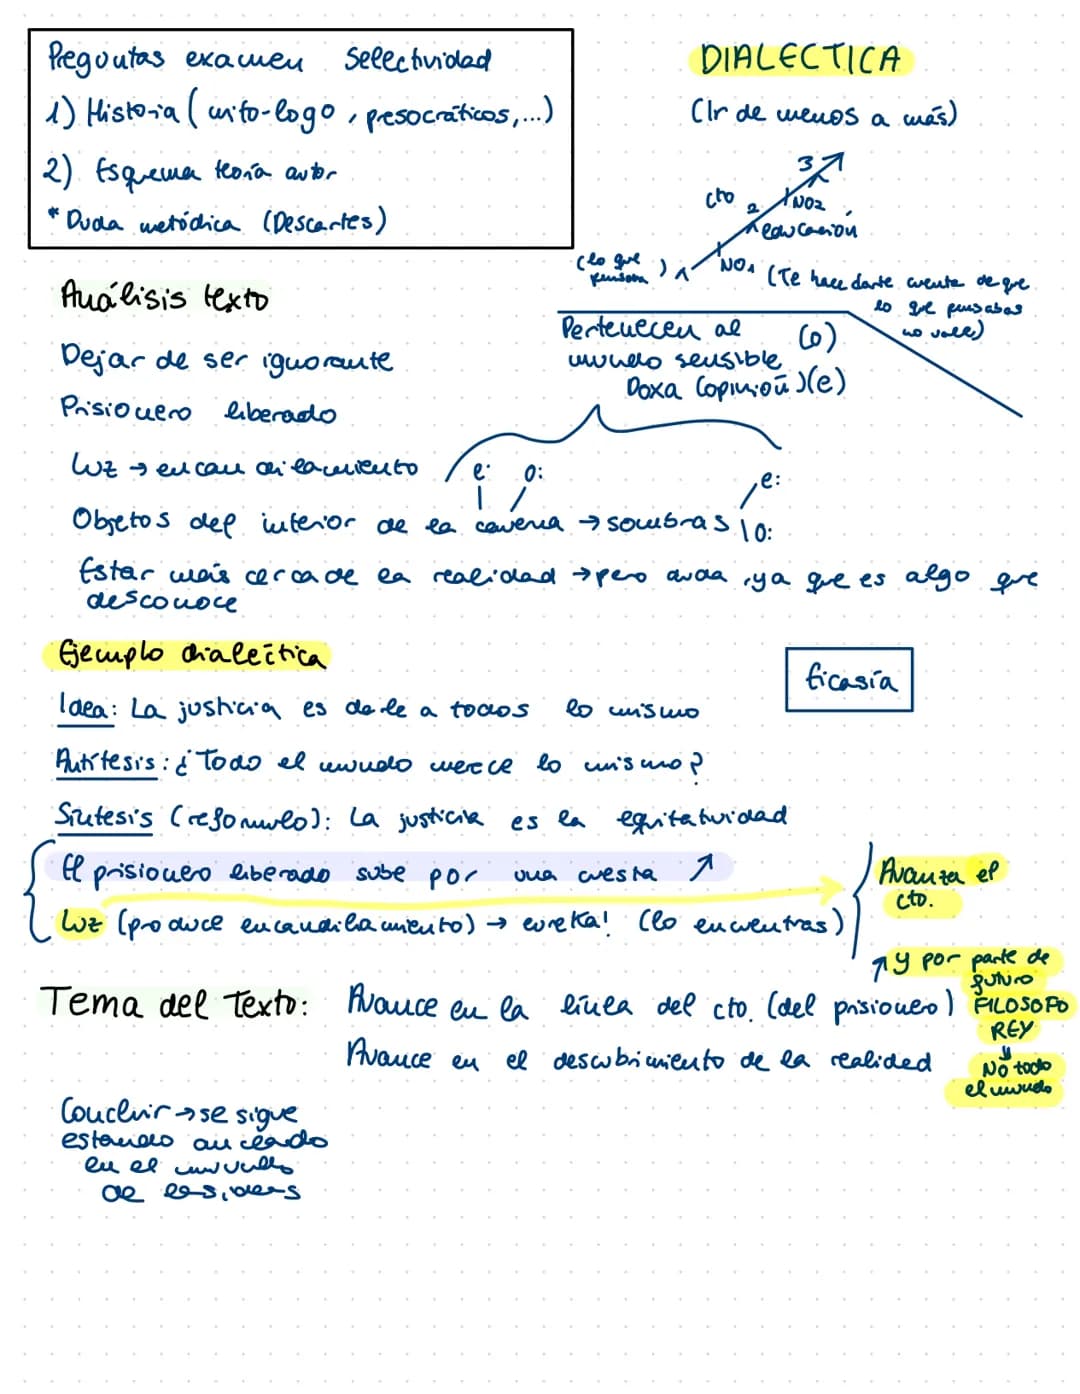 Preguntas examen Selectividad
1) Historia (mito-logo, presocráticos,...)
2) Esquema teoría autor
* Duda metódica (Descartes)
DIALECTICA
(Ir de menos a más)
3
cto 2 NO2
educación
(lo que piensan) 1 NO1 (Te hace darte cuenta de que
lo que pensabas
no vale)
Análisis texto
Pertenecen al (o)
mundo sensible
Doxa (opinión) (e)
Dejar de ser ignorante
Prisionero liberado
Luz → encandilamiento
e: o: e:
Objetos del interior de la caverna → sombras o:
Estar más cerca de la realidad → pero duda, ya que es algo que
desconoce
Ejemplo dialéctica
Eicasía
Idea: La justicia es darle a todos lo mismo
Antítesis: ¿Todo el mundo merece lo mismo?
Síntesis (reformulo): La justicia es la equitatividad
El prisionero liberado sube por una cuesta ↗
Luz (produce encandilamiento) → eureka! (lo encuentras)
Avanza el
cto.
↗ y por parte de
futuro
FILOSOFO
REY
⇓
No todo
el mundo
Tema del Texto: Avance en la línea del cto. (del prisionero)
Avance en el descubrimiento de la realidad
Concluir → se sigue
estando anclado
en el mundo
de